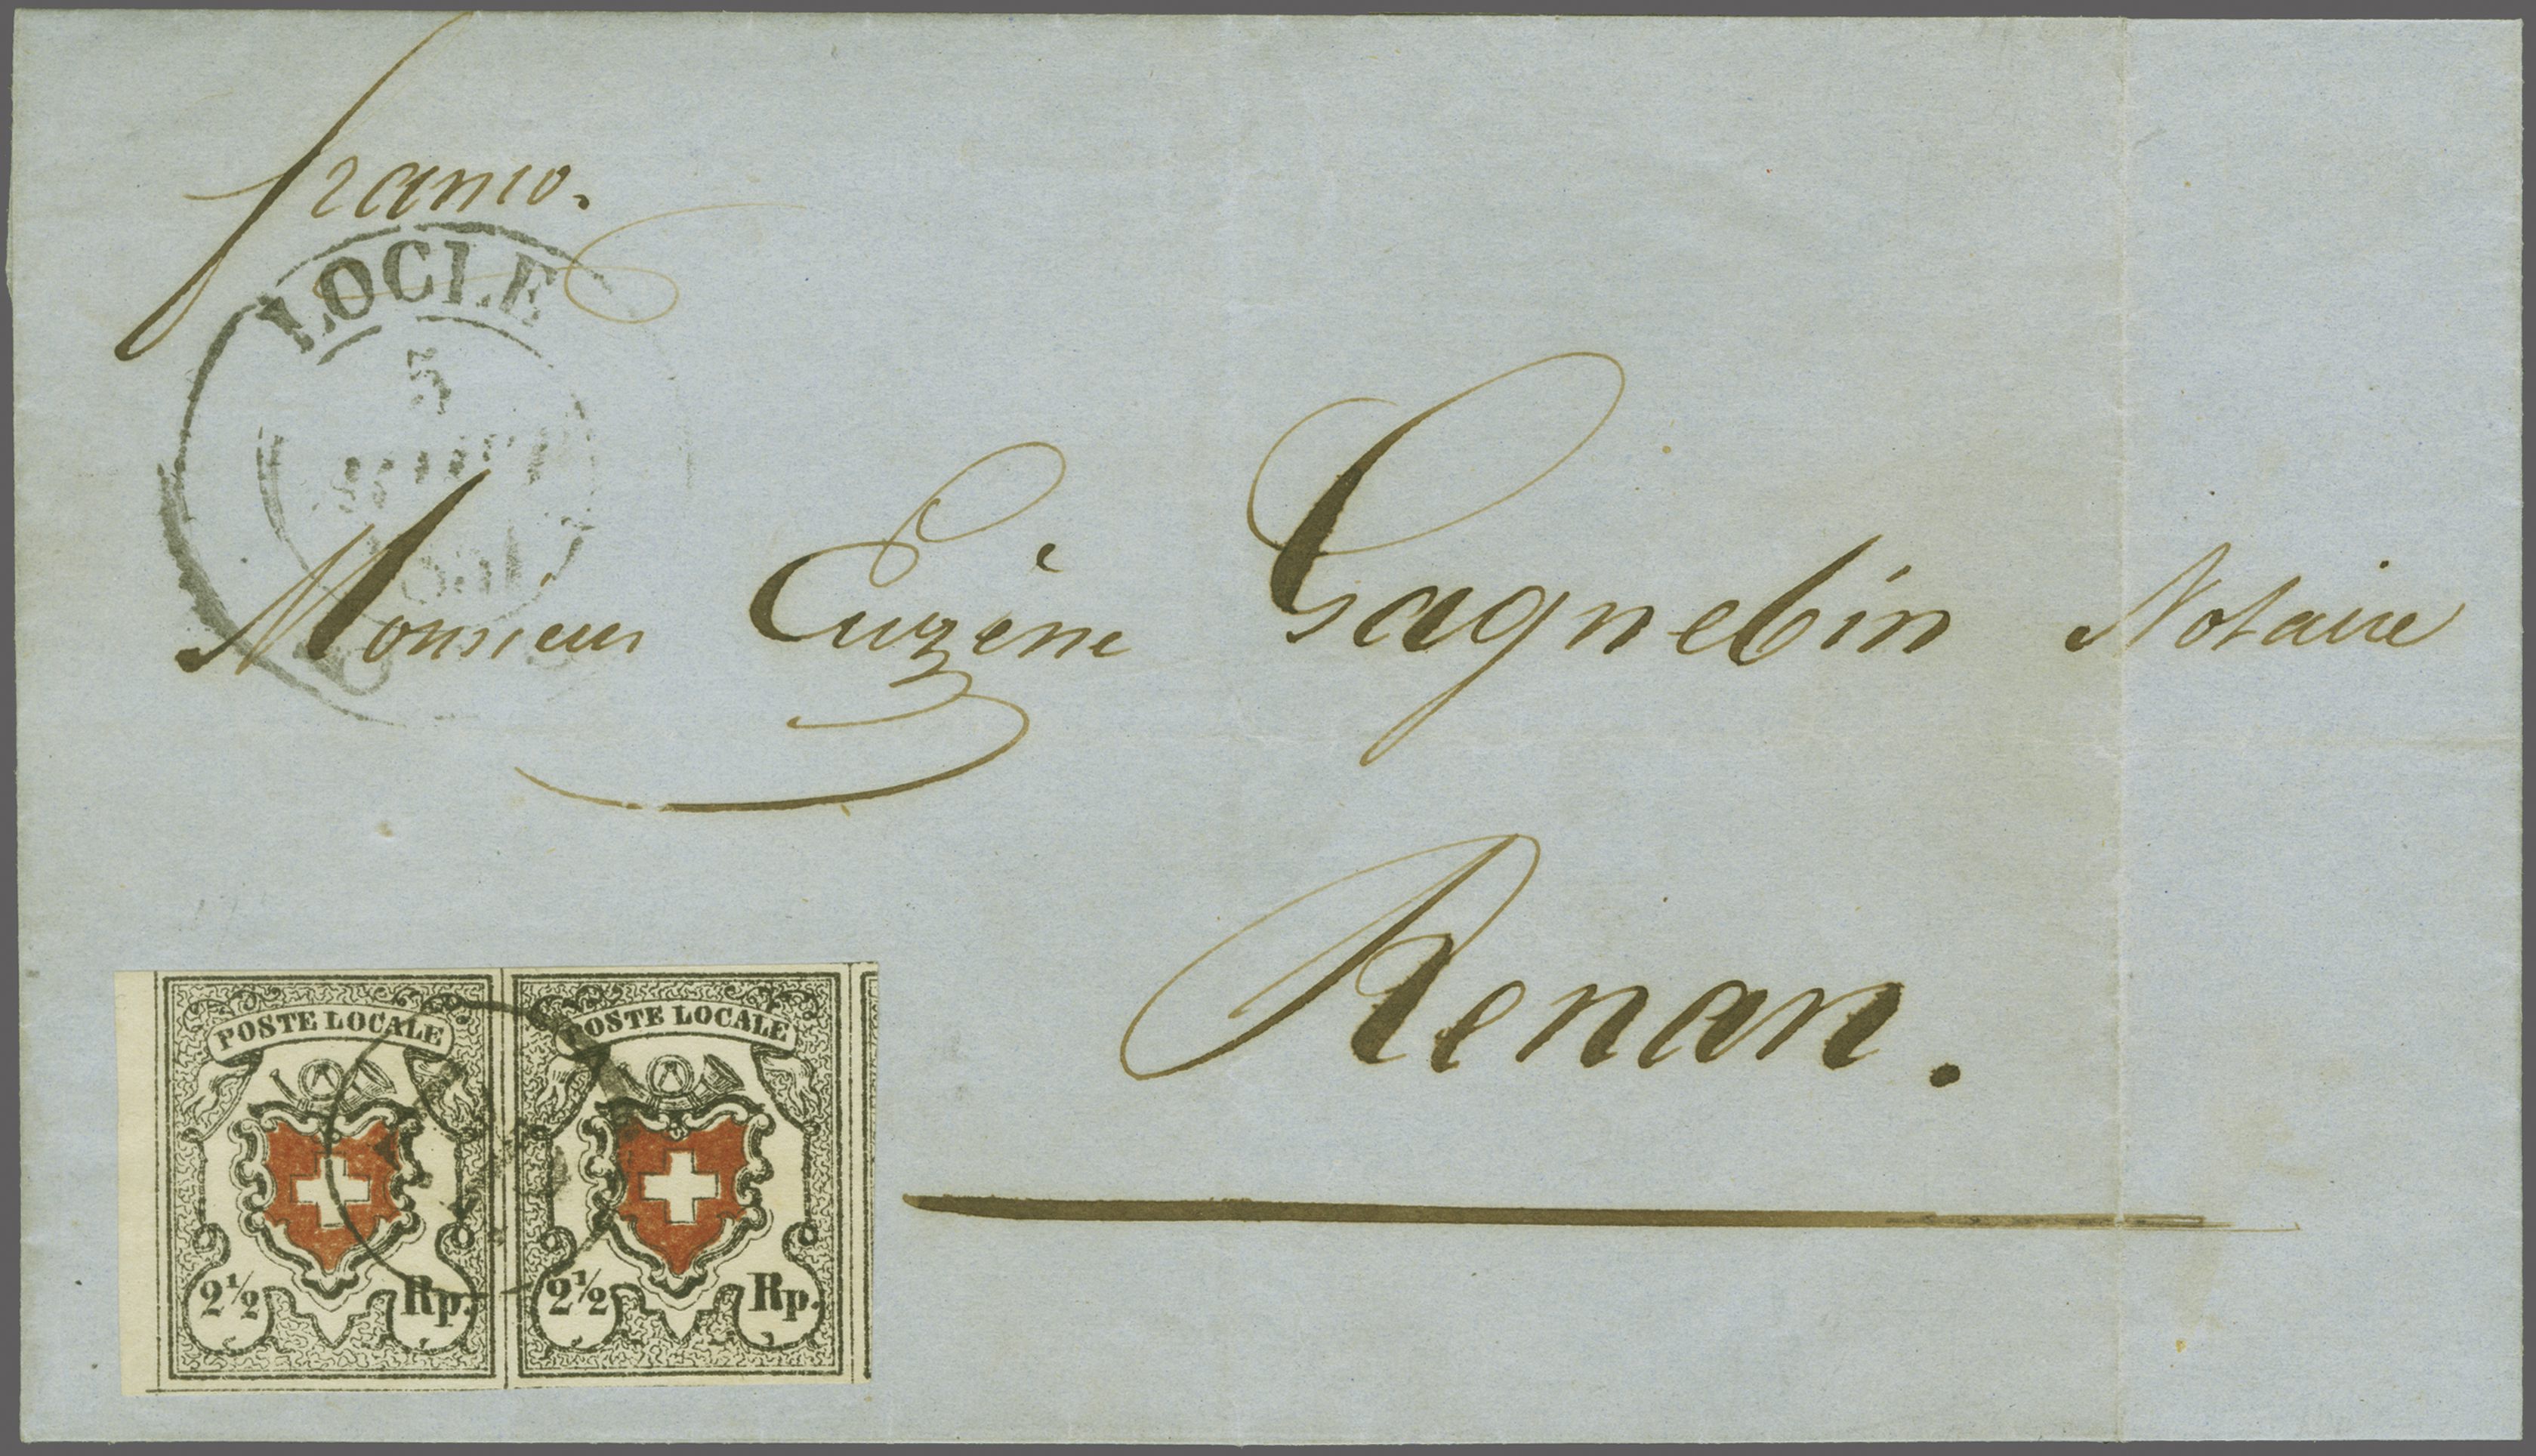 franco.
LOCLE
5
Monsieur Eugène Gagnebin Notaire
Renan.
POSTE LOCALE
2½ Rp.
POSTE LOCALE
2½ Rp.